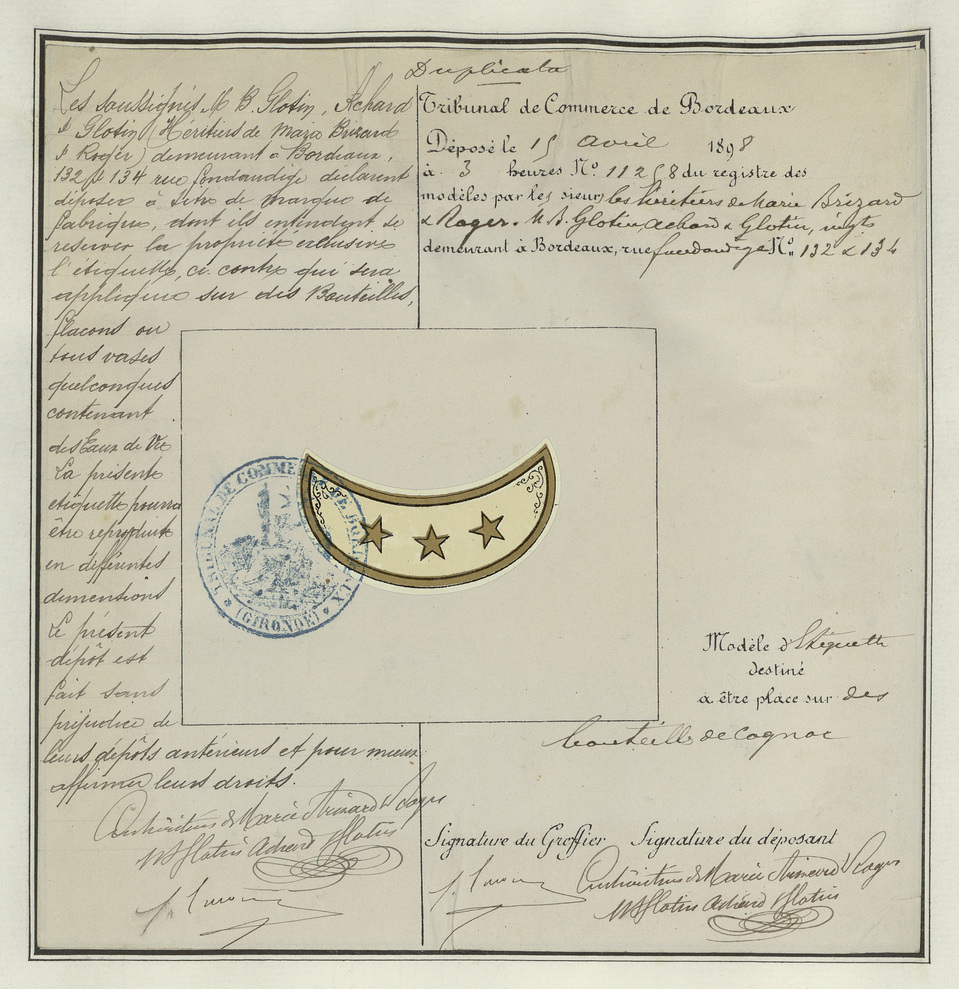 Duplicata
Les soussignés M B. Glotin, Achard
& Glotin (Héritiers de Marie Brizard
& Roger) demeurant à Bordeaux,
132 & 134 rue fondaudège déclarent
déposer à titre de marque de
fabrique, dont ils entendent se
réserver la propriété exclusive
l'étiquette, ci contre qui sera
appliquée sur des Bouteilles,
flacons ou
tous vases
quelconques
contenant
des Eaux de Vie
La présente
etiquette pourra
être reproduite
en différentes
dimensions
Le présent
dépôt est
fait sans
préjudice de
leurs dépôts antérieurs et pour mieux
affirmer leurs droits.
Les héritiers de Marie Brizard & Roger
Glotin Achard Glotin
Tribunal de Commerce de Bordeaux
Déposé le 15 avril 1898
à 3 heures No. 11258 du registre des
modèles par les sieurs les héritiers de Marie Brizard
& Roger. M. B. Glotin, achard & Glotin, négts
demeurant à Bordeaux, rue fondaudège No. 132 & 134
TRIBUNAL DE COMMERCE DE BORDEAUX
(GIRONDE)
Modèle d'Etiquette
destiné
à être placé sur des
bouteilles de Cognac
Signature du Greffier Signature du déposant
Les héritiers de Marie Brizard & Roger
Glotin Achard Glotin